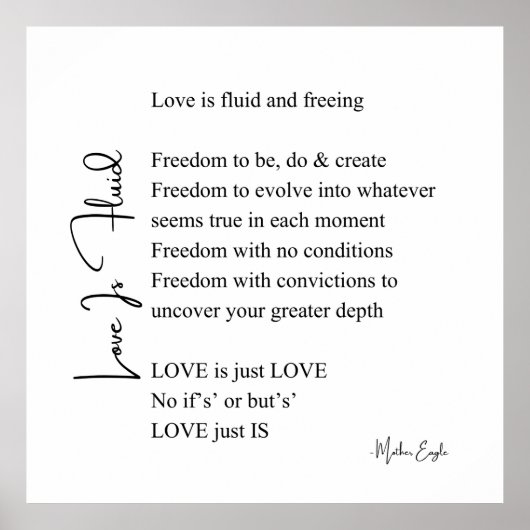 Love Is Fluid
Love is fluid and freeing
Freedom to be, do & create
Freedom to evolve into whatever
seems true in each moment
Freedom with no conditions
Freedom with convictions to
uncover your greater depth
LOVE is just LOVE
No if's' or but's'
LOVE just IS
-Mother Eagle